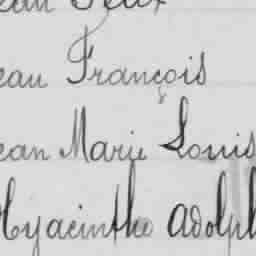 ean Felix
eau François
ean Marie Louis
Hyacinthe Adolph